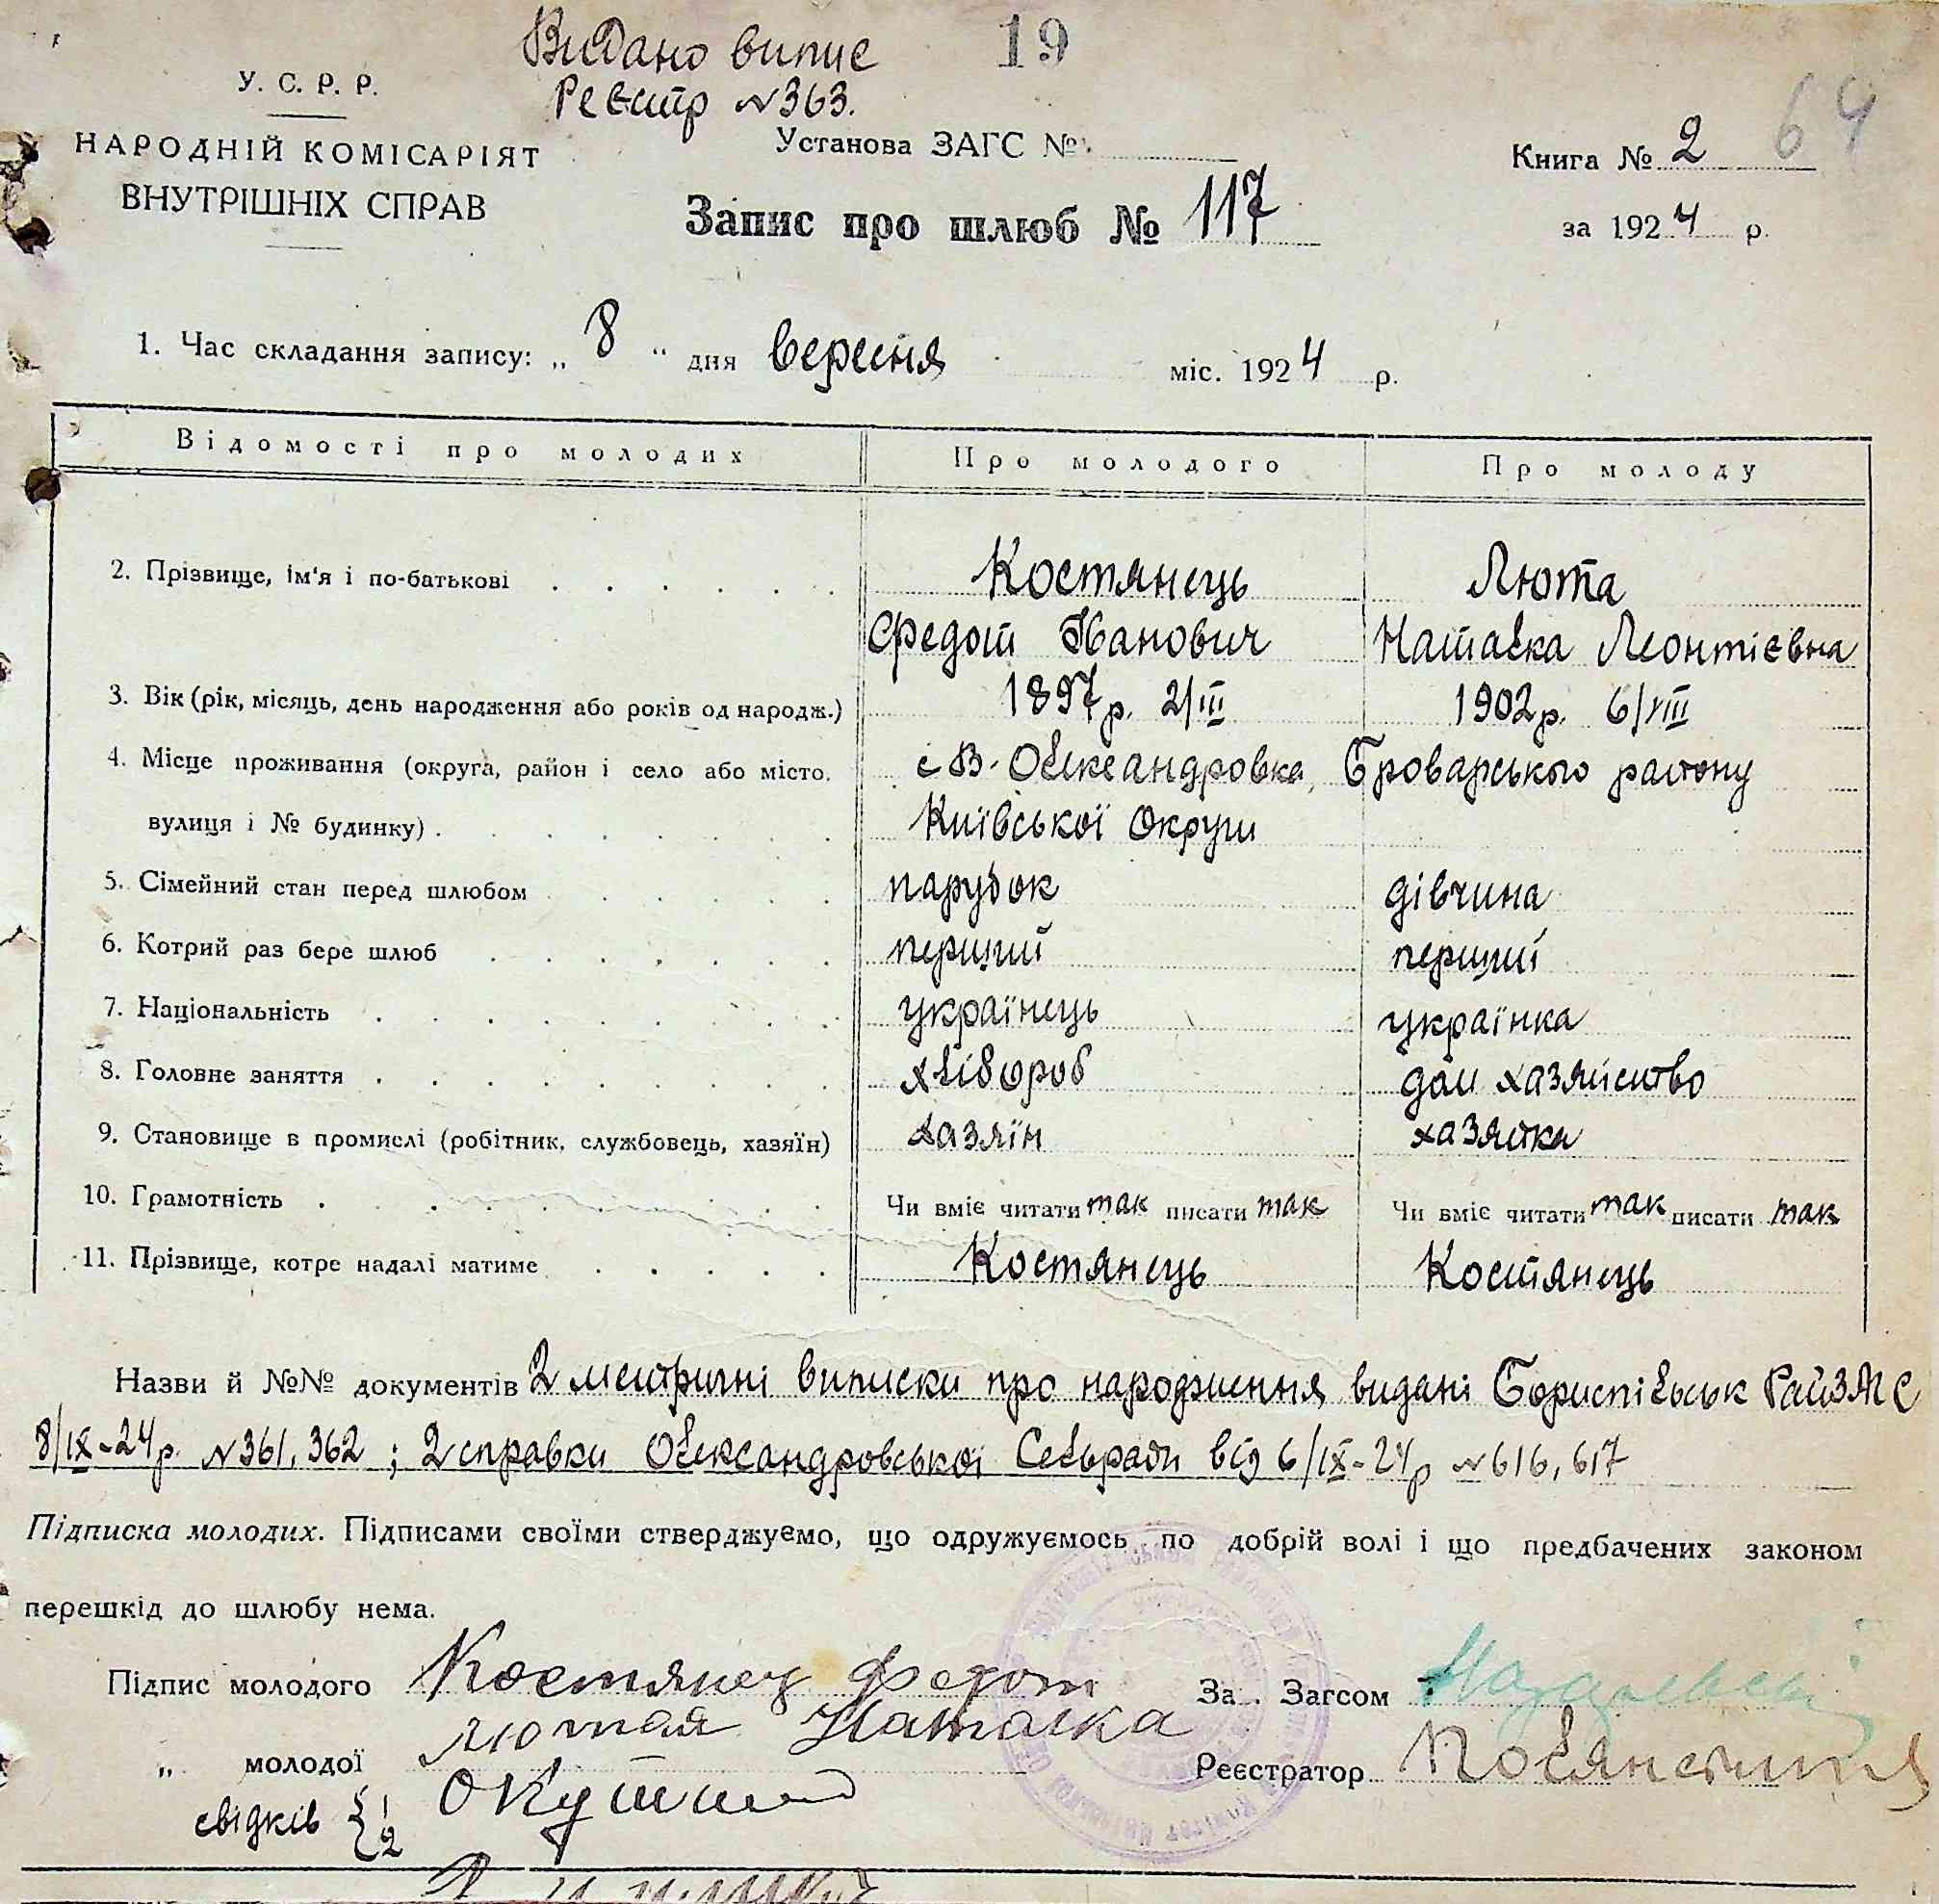 Видано випис 19
Реєстр № 363.
У. С. Р. Р.
НАРОДНІЙ КОМІСАРІЯТ
ВНУТРІШНІХ СПРАВ
Установа ЗАГС №
Книга № 2 64
Запис про шлюб № 117
за 1924 р.
1. Час складання запису: „ 8 “ дня вересня міс. 1924 р.
Відомості про молодих Про молодого Про молоду
2. Прізвище, ім'я і по-батькові Костянець Люта
Федот Іванович Наталка Леонтієвна
3. Вік (рік, місяць, день народження або років од народж.) 1897 р. 2/III 1902 р. 6/VIII
4. Місце проживання (округа, район і село або місто, с В-Олександровка, Броварського району
вулиця і № будинку) Київської Округи
5. Сімейний стан перед шлюбом парубок дівчина
6. Котрий раз бере шлюб перший перший
7. Національність українець українка
8. Головне заняття хлібороб дом хазяйство
9. Становище в промислі (робітник, службовець, хазяїн) хазяїн хазяйка
10. Грамотність Чи вміє читати так писати так Чи вміє читати так писати так
11. Прізвище, котре надалі матиме Костянець Костянець
Назви й №№ документів 2 метричні виписки про народження видані Бориспільськ РайЗАГС
8/IX-24 р. № 361, 362 ; 2 справки Олександровської Сельради від 6/IX-24 р № 616, 617
Підписка молодих. Підписами своїми стверджуємо, що одружуємось по добрій волі і що предбачених законом
перешкід до шлюбу нема.
Підпис молодого Костянец Федот За . Загсом
„ молодої Лютая Наталка Реєстратор
свідків { 1
2